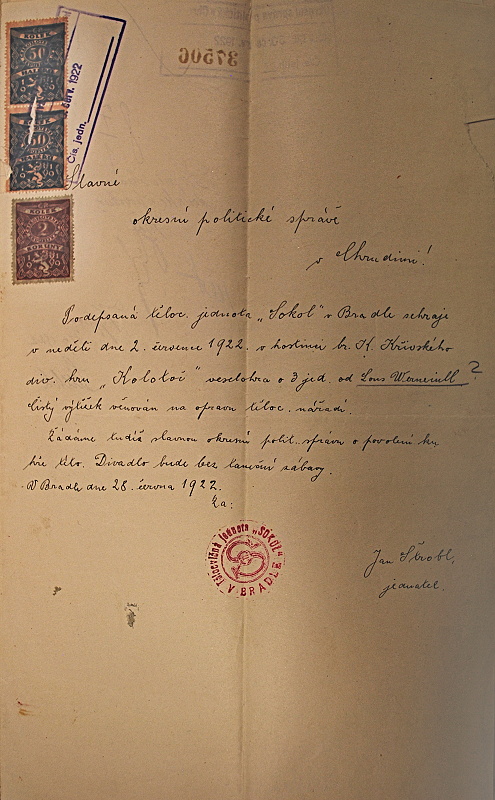 KOLEK
50
KOLEK
50
KOLEK
2
KORUNY
červ. 1922
Čís. jedn.
37506
Slavné
okresní politické správě
v Chrudimi!
Podepsaná těloc. jednota „Sokol" v Bradle sehraje
v neděli dne 2. července 1922. v hostinci br. K. Křivského
div. hru „Kolotoč" veselohra o 3 jed. od Louis Werneuill ?
Čistý výtěžek věnován na opravu těloc. nářadí.
Žádáme tudíž slavnou okresní polit. správu o povolení ku
hře této. Divadlo bude bez taneční zábavy.
V Bradle dne 28. června 1922.
Za:
Tělocvičná jednota „SOKOL"
V BRADLE
Jan Štrobl,
jednatel.